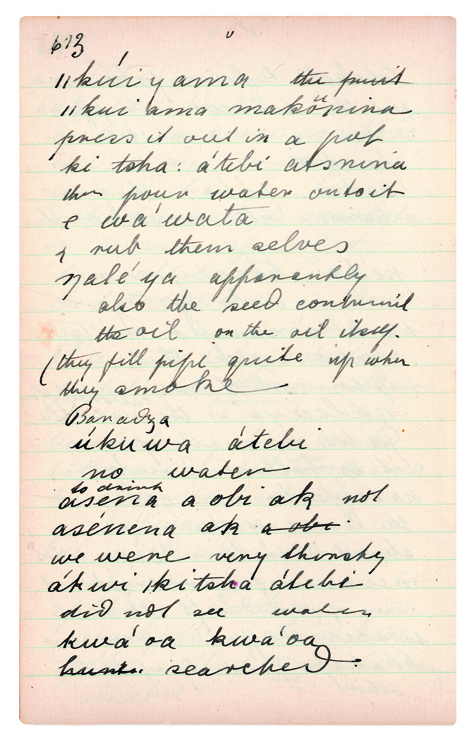 613
"kúi yama the fruit
"kui ama makönina
press it out in a pot
ki tsha: átebi atsnina
then pour water onto it
e wá wata
& rub them selves
ŋalé ya apparantly
also the seed
the oil on the oil itself.
(they fill pipe quite up when
they smoke
Banadza
úku wa átebi
no water
to drink
aséna a obi ak not
asénena ak a obi
we were very thirsty
ákwi kitsha átebi
did not see water
kwá oa kwá oa
hunt searched.